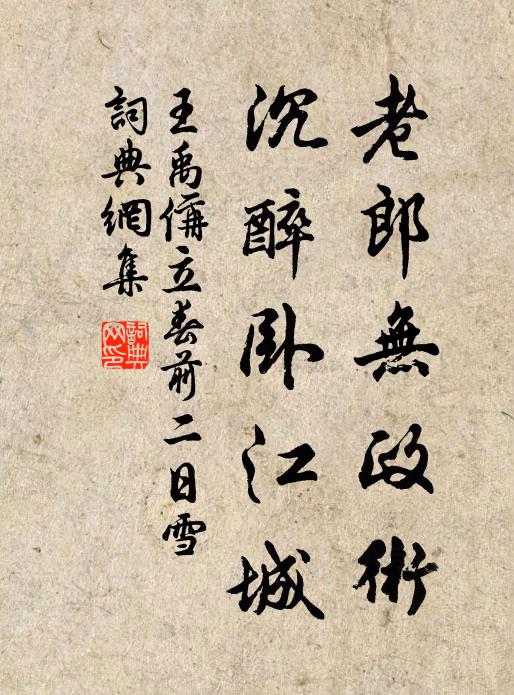 老郎無政術
沉醉卧江城
王禹偁立春前二日雪
詞典網集
詞典網印